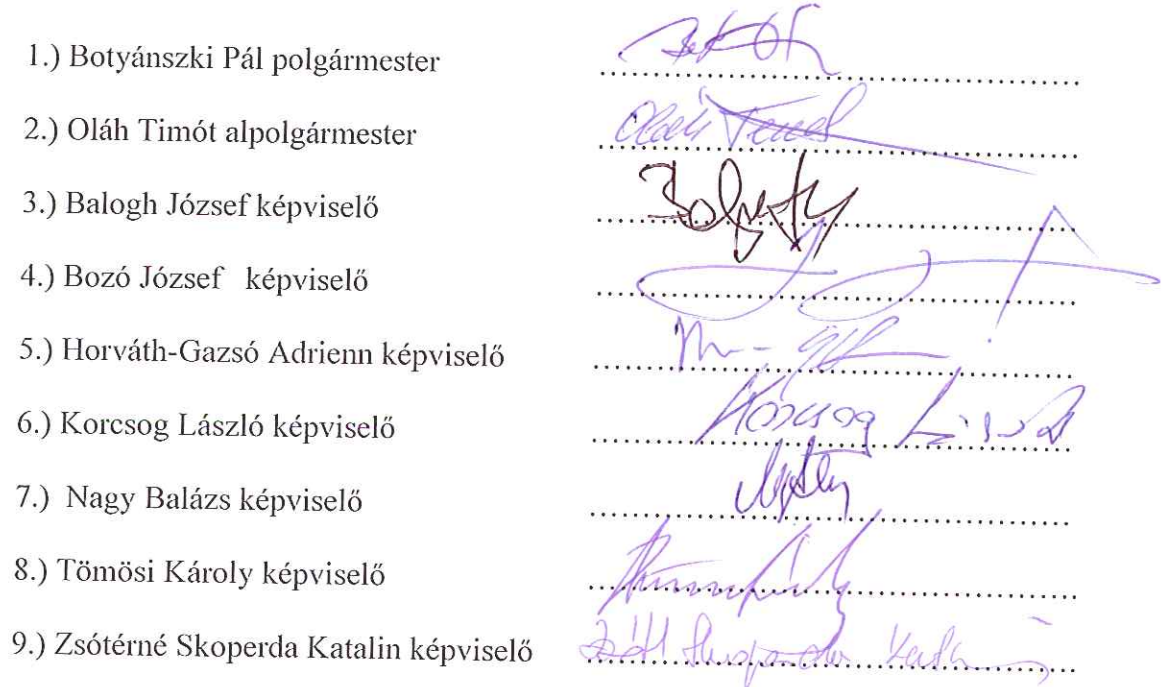 1.) Botyánszki Pál polgármester
2.) Oláh Timót alpolgármester Oláh
3.) Balogh József képviselő
4.) Bozó József képviselő
5.) Horváth-Gazsó Adrienn képviselő
6.) Korcsog László képviselő Korcsog László
7.) Nagy Balázs képviselő
8.) Tömösi Károly képviselő
9.) Zsótérné Skoperda Katalin képviselő Skoperda